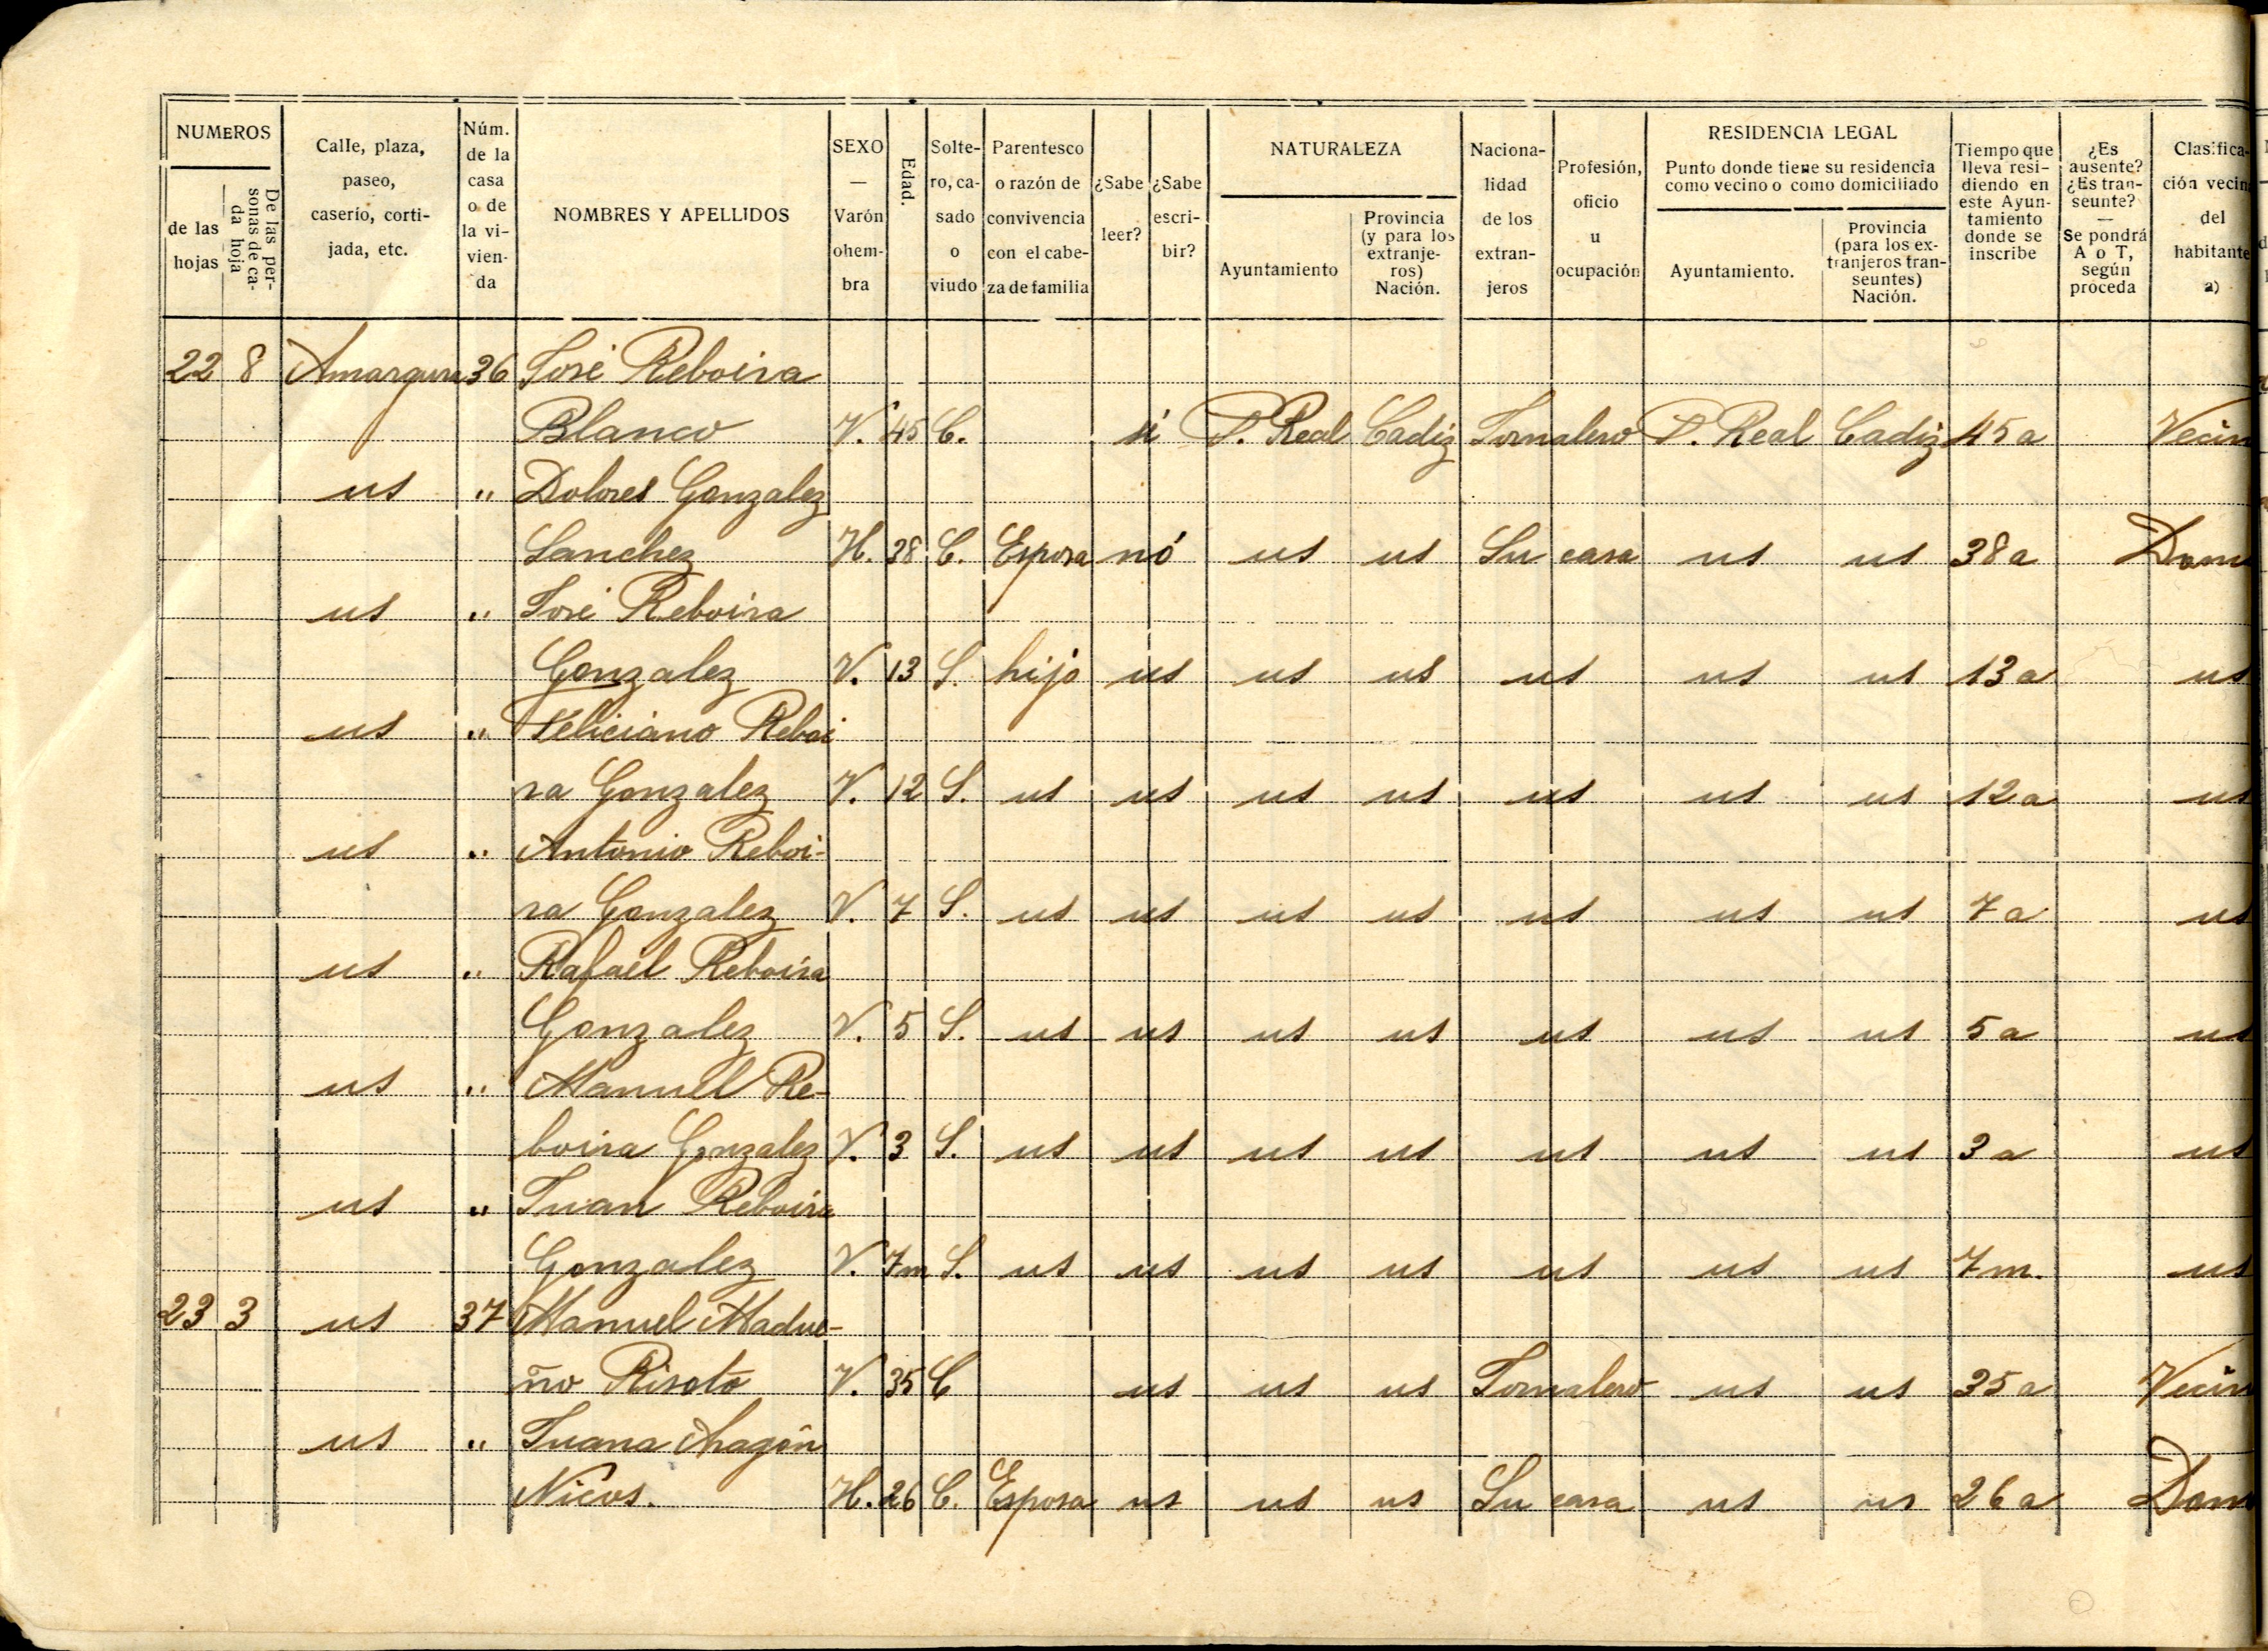 NUMEROS
de las hojas
De las personas de cada hoja
Calle, plaza, paseo, caserío, cortijada, etc.
Núm. de la casa o de la vivienda
NOMBRES Y APELLIDOS
SEXO — Varón o hembra
Edad.
Soltero, casado o viudo
Parentesco o razón de convivencia con el cabeza de familia
¿Sabe leer?
¿Sabe escribir?
NATURALEZA
Ayuntamiento
Provincia (y para los extranjeros) Nación.
Nacionalidad de los extranjeros
Profesión, oficio u ocupación
RESIDENCIA LEGAL
Punto donde tiene su residencia como vecino o como domiciliado
Ayuntamiento.
Provincia (para los extranjeros transeuntes) Nación.
Tiempo que lleva residiendo en este Ayuntamiento donde se inscribe
¿Es ausente? ¿Es transeunte? — Se pondrá A o T, según proceda
Clasifica- ción vecin del habitante a)
22 8 Amargura 36 José Reboira
Blanco V. 45 C. si P. Real Cadiz Jornalero P. Real Cadiz 45 a Vecin
us " Dolores Gonzalez
Sanchez H. 38 C. Esposa nó us us Su casa us us 38 a Dom
us " José Reboira
Gonzalez V. 13 S. hijo us us us us us us 13 a us
us " Feliciano Reboi
ra Gonzalez V. 12 S. us us us us us us us 12 a us
us " Antonio Reboi-
ra Gonzalez V. 7 S. us us us us us us us 7 a us
us " Rafael Reboira
Gonzalez V. 5 S. us us us us us us us 5 a us
us " Manuel Re-
boira Gonzalez V. 3 S. us us us us us us us 3 a us
us " Juan Reboira
Gonzalez V. 7m S. us us us us us us us 7 m. us
23 3 us 37 Manuel Madue-
ño Risoto V. 35 C us us us Jornalero us us 35 a Vecin
us " Juana Aragón
Nicos. H. 26 C. Esposa us us us Su casa us us 26 a Dom